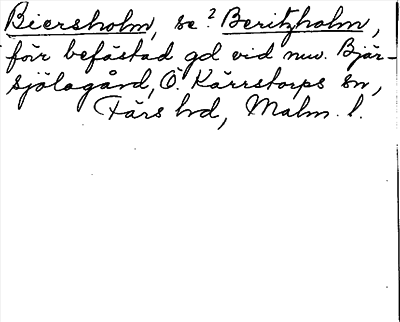 Biersholm, se ? Beritzholm,
förr befästad gd vid nuv. Bjär-
sjölagård, Ö. Kärrstorps sn,
Färs hd, Malm. l.